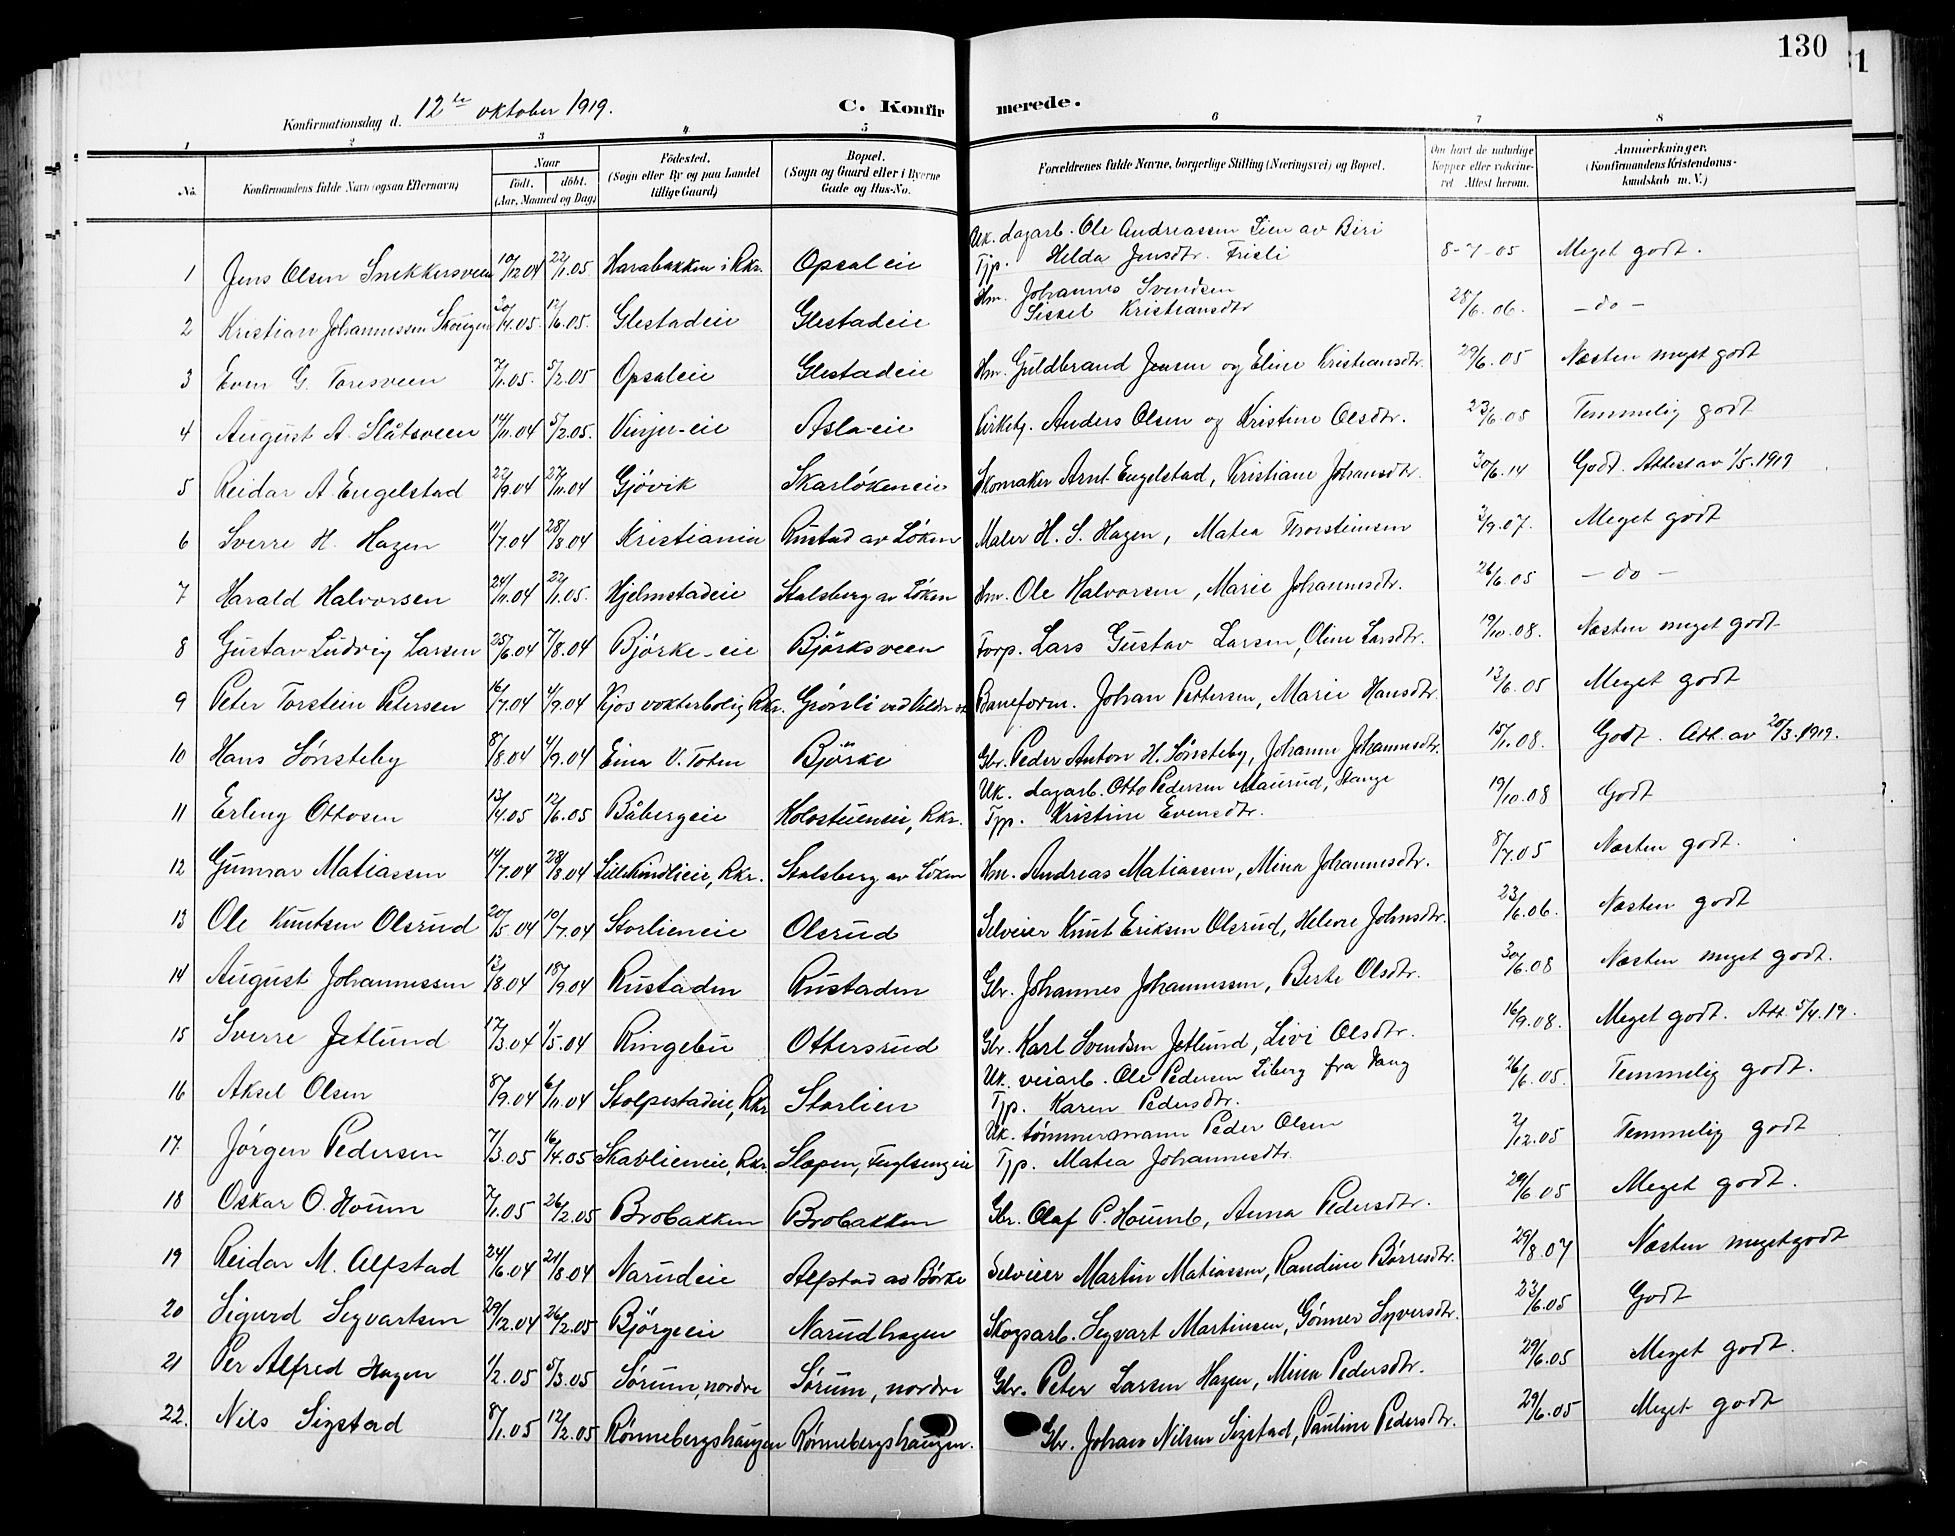 130
Konfirmationsdag d. 12te oktober 1919. C. Konfirmerede.
1 2 3 4 5 6 7 8
No. Konfirmandens fulde Navn (ogsaa Efternavn) Naar Født. døbt. (Aar, Maaned og Dag) Fødested. (Sogn eller By og paa Landet tillige Gaard) Bopæl. (Sogn og Gaard eller i Byerne Gade og Hus-No. Forældrenes fulde Navne, borgerlige Stilling (Næringsvei) og Bopæl. Om havt de naturlige Kopper eller vaccineret Attest herom. Anmerkninger. (Konfirmandens Kristendomskundskab m. V.)
Uk. dagarb. Ole Andreassen Lien av Biri
1 Jens Olsen Snekkersveen 10/12.04 22/1.05. Harabakken i Rkr. Opsaleie Tjp. Helda Jensdtr. Frisli 8-7-05 Meget godt.
2 Kristian Johannessen Skougen 20/4.05. 12/6.05. Glestadeie Glestadeie Hm. Johannes Svendsen Sissel Kristiansdtr 28/6.06. - do -
3 Even G. Toresveen 7/1.05. 5/2.05 Opsaleie Glestadeie Hm. Guldbrand Jensen og Eline Kristiansdtr. 29/6.05 Næsten meget godt
4 August A. Slåtsveen 14/11.04 5/2.05. Vinju-eie Asla-eie Kirketj. Anders Olsen og Kristine Olsdtr. 23/6.05 Temmelig godt
5 Reidar A. Engelstad 22/9.04 27/11.04 Gjøvik Skarløkeneie Skomaker Arnt Engelstad, Kristiane Johansdtr. 30/6.14 Godt. Attest av 1/5.1919
6 Sverre H. Hagen 11/7.04 28/8.04 Kristiania Rustad av Løken Maler H. S. Hagen, Matea Thorsteinsen 2/9.07. Meget godt
7 Harald Halvorsen 24/11.04 22/1.05. Hjelmstadeie Stalsberg av Løken Hm. Ole Halvorsen, Marie Johannesdtr. 26/6.05 - do -
8 Gustav Ludvig Larsen 25/6.04 7/8.04 Bjørke-eie Bjørksveen Torp. Lars Gustav Larsen, Oline Larsdtr. 19/10.08. Næsten meget godt
9 Peter Torstein Petersen 16/7.04 4/9.04 Kjos vokterbolig Rkr. Grønli ved Veldre st Baneform. Johan Pettersen, Marie Hansdtr. 13/6.05 Meget godt
10 Hans Sønsteby 8/8.04 4/9.04 Eina V. Toten Bjørke Gbr. Peder Anton H. Sønsteby, Johanne Johannesdtr. 15/1.08. Godt. Att. av 20/3.1919.
Uk. dagarb. Otto Pedersen Maurud, Stange
11 Erling Ottosen 13/4.05 12/6.05 Båbergeie Kolostueneie, Rkr. Tjp. Kristine Evensdtr. 19/10.08 Godt
12 Gunnar Matiassen 14/7.04 28/8.04 Lille Kindlieie, Rkr. Stalsberg av Løken Hm. Andreas Matiassen, Mina Johannesdtr. 8/7.05 Næsten godt.
13 Ole Knutsen Olsrud 20/5.04 10/7.04 Storlieneie Olsrud Selveier Knut Eriksen Olsrud, Helene Johnsdtr. 23/6.06. Næsten godt
14 August Johannessen 13/8.04 18/9.04 Rustaden Rustaden Gbr. Johannes Johannessen, Berte Olsdtr. 30/6.08 Næsten meget godt.
15 Sverre Jetlund 17/3.04 1/5.04 Ringebu Ottersrud Gbr. Karl Svendsen Jetlund, Livi Olsdtr. 16/9.08. Meget godt. Att. 5/4.19.
Uk. veiarb. Ole Pedersen Liberg fra Vang
16 Aksel Olsen 8/9.04 6/11.04 Stolpestadeie, Rkr Storlien Tjp. Karen Pedersdtr. 26/6.05. Temmelig godt.
Uk. tømmermann Peder Olsen
17. Jørgen Pedersen 7/3.05 16/4.05 Skavlieneie, Rkr. Slapen, Fuglsengeie Tjp. Matea Johannesdtr. 2/12.05 Temmelig godt
18 Oskar O. Houm 7/1.05 26/2.05 Brobakken Brobakken Gbr. Olaf P. Houmb, Anna Pedersdtr. 29/6 05 Meget godt.
19 Reidar M. Alfstad 24/6.04 21/8.04 Narudeie Alfstad av Børke Selveier Martin Matiassen, Randine Børresdtr. 29/8.07 Næsten meget godt
20 Sigurd Segvartsen 29/12.04 26/2.05 Bjørgeeie Narudhagen Skogsarb. Segvart Martinsen, Gønner Syversdtr. 23/6.05 Godt
21 Per Alfred Hagen 1/2.05 5/3.05 Sørum, nordre Sørum, nordre Gbr. Peter Larsen Hagen, Mina Pedersdtr. 29/6.05 Meget godt.
22. Nils Sigstad 8/1.05 12/2.05 Rønnebergshaugen Rønnebergshaugen. Gbr. Johan Nilsen Sigstad, Pauline Pedersdtr. 29/6.05 Meget godt